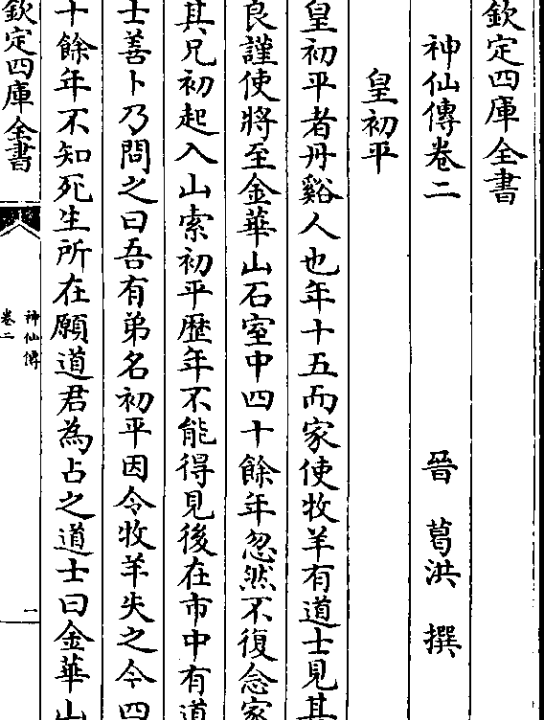 欽定四庫全書
神仙傳卷二
晉 葛洪 撰
皇初平
皇初平者丹谿人也年十五而家使牧羊有道士見其
良謹使將至金華山石室中四十餘年忽然不復念家
其兄初起入山索初平歷年不能得見後在市中有道
士善卜乃問之曰吾有弟名初平因令牧羊失之今四
十餘年不知死生所在願道君為占之道士曰金華山
欽定四庫全書
神仙傳
卷二
一